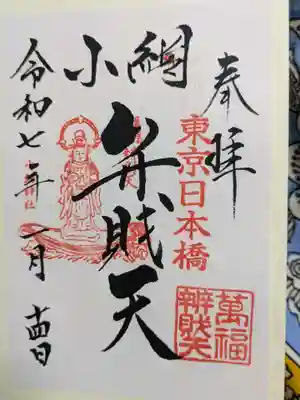 奉拝
東京日本橋
萬福
辨財天
小網
弁財天
令和七年
一月
十四日